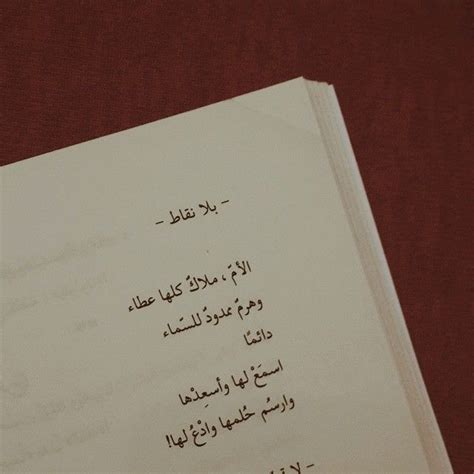 - بلا نقاط -
الأمّ، ملاكٌ كلها عطاء
وهرمٌ ممدودٌ للسّماء
دائمًا
اسمَعْ لها وأسعِدْها
وارسُم حُلمها وادْعُ لها!